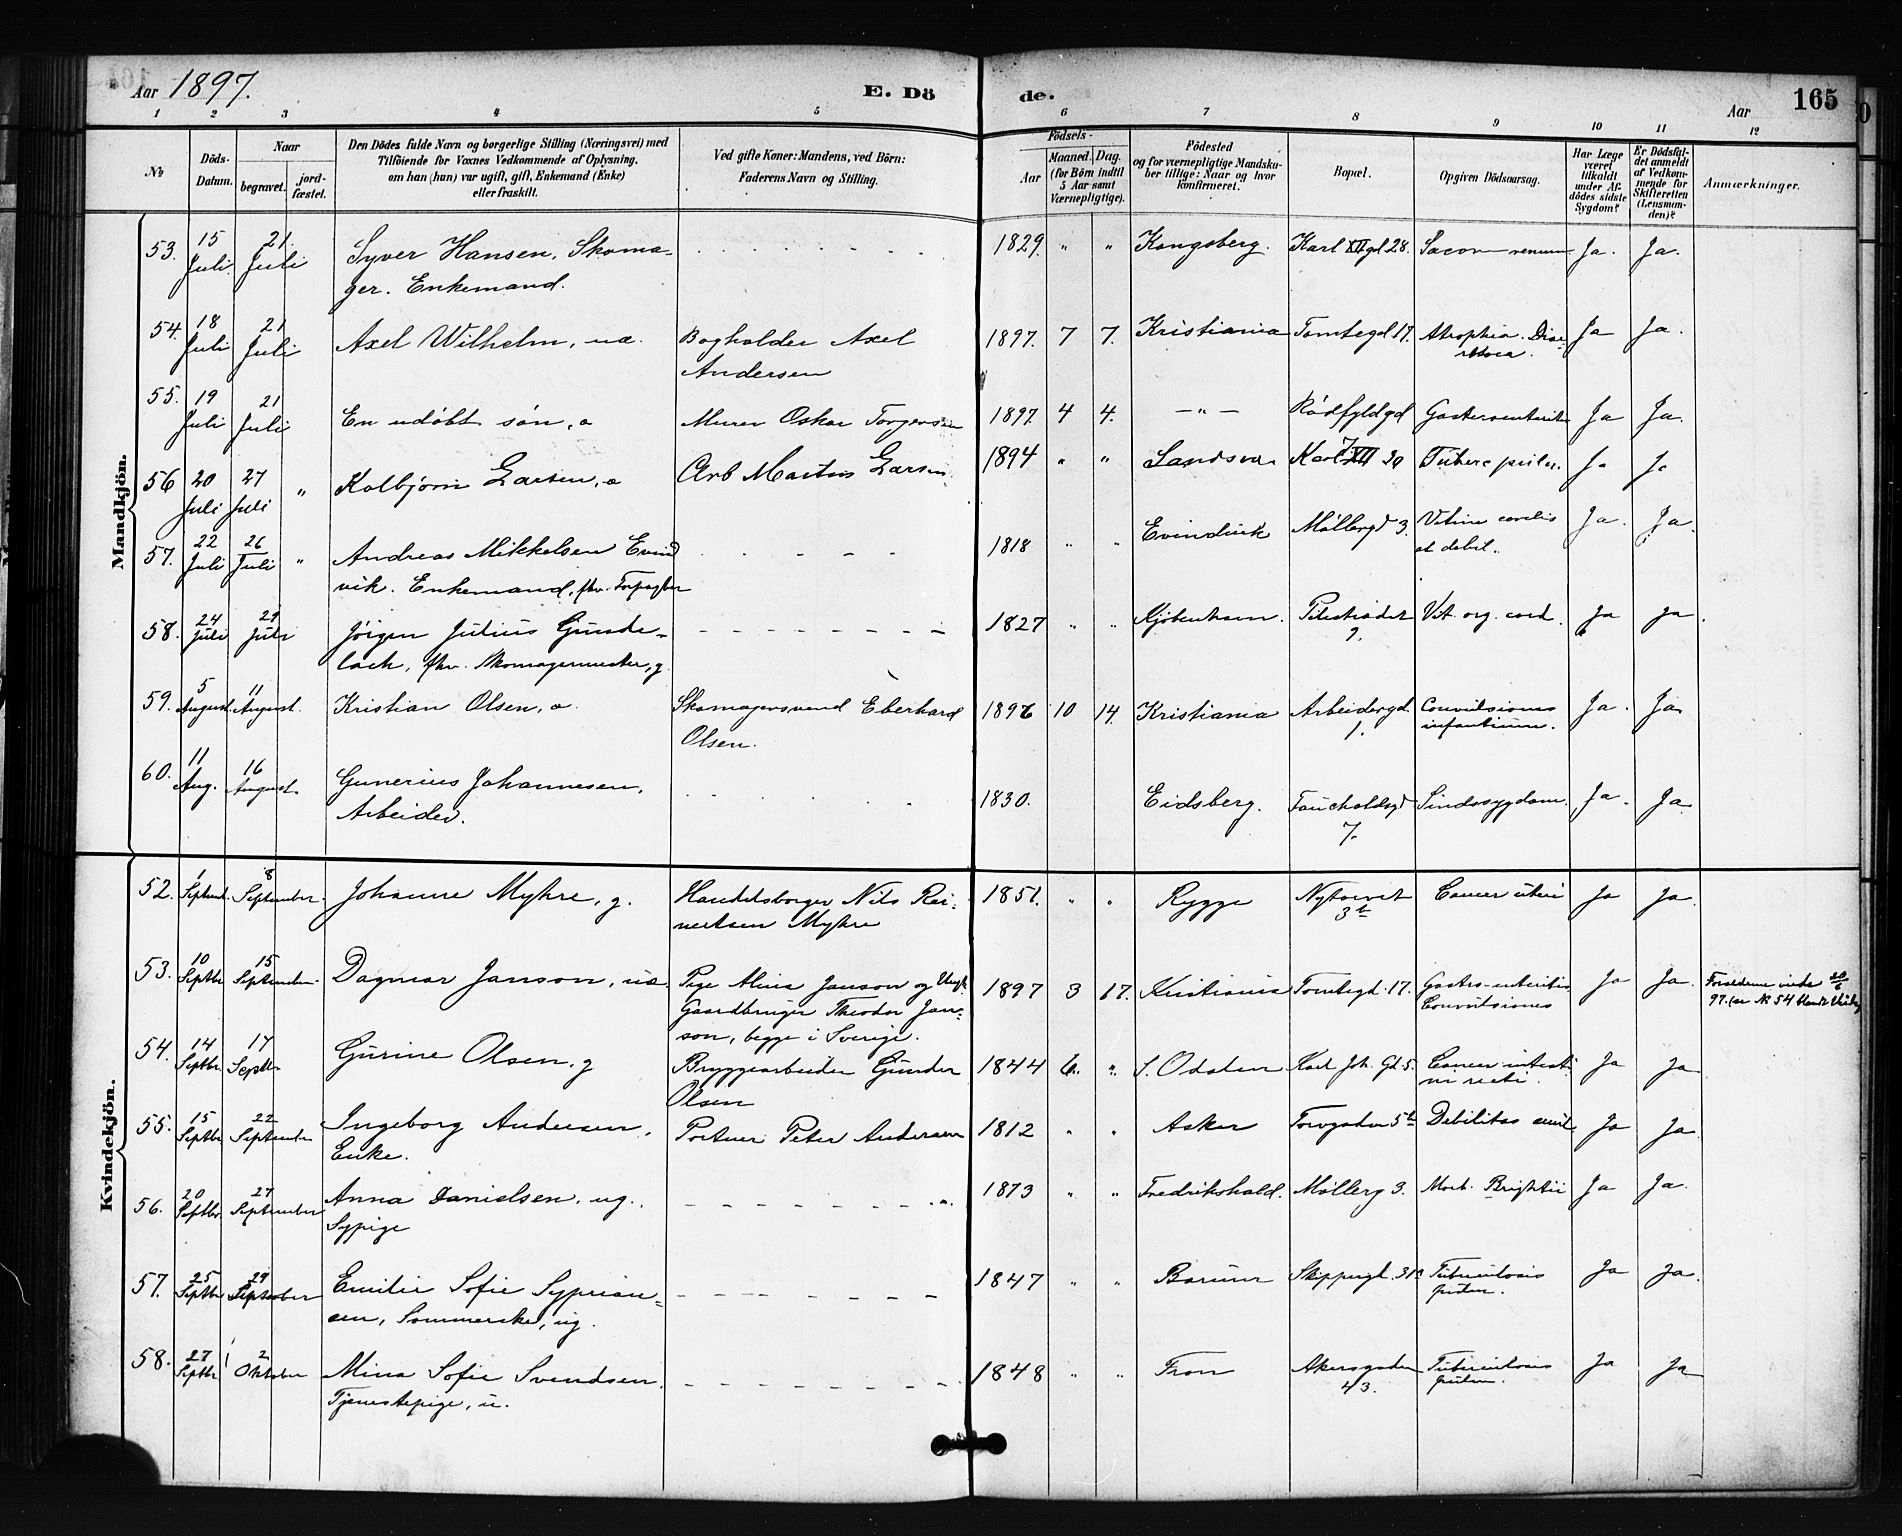 Aar 1897. E. Dö de. Aar 165
1 2 3 4 5 6 7 8 9 10 11 12
No Döds-Datum. Naar begravet. jord-fæstet. Den Dödes fulde Navn og borgerlige Stilling (Næringsvei) med Tilföiende for Voxnes Vedkommende af Oplysning, om han (hun) var ugift, gift, Enkemand (Enke) eller fraskilt. Ved gifte Koner: Mandens, ved Börn: Faderens Navn og Stilling. Födsels- Aar Maaned. Dag. (for Börn indtil 5 Aar samt Værnepligtige). Födested og for værnepligtige Mandsku-ber tillige: Naar og hvor konfirmeret. Bopæl. Opgiven Dödsaarsag. Har Læge været tilkaldt under Af-dödes sidste Sygdom? Er Dödsfal-det anmeldt af Vedkom-mende for Skifteretten (Lensman-den)? Anmærkninger.
Mandkjön.
53. 15 Juli 21. Juli Syver Hansen, Skoma- 1829. " " Kongsberg. Karl XII gd 28. Ja. Ja.
ger. Enkemand.
54. 18 Juli 21 Juli Axel Wilhelm, ua. Bogholder Axel 1897. 7 7. Kristiania Tomtegd 17. Atrophia. Diar- Ja Ja.
Andersen rhoea.
55. 19 Juli 21 Juli En udöbt sön, a Murer Oskar Torgersen 1897. 4 4. — " — Rödfyldgd Gastroenterit Ja Ja.
56 20 Juli 27 Juli " Kolbjörn Larsen, a Arb Martus Larsen 1894 " " Karl XII Ja Ja
57. 22 Juli 26 Juli " Andreas Mikkelsen Evind 1818 " " Evindvik Möllergd 3. Vitium cordis Ja. Ja.
vik. Enkemand, fhv. Forpagter et debil.
58. 24 Juli 29 Juli Jörgen Julius Gunde- 1827 " " Kjöbenhavn. Pilestrædet Vit. org. cord. Ja Ja.
lach, fhv. Skomagermester, g. 9.
59. 5 August. 11 August. Kristian Olsen, a. Skomagersvend Eberhard 1896 10 14. Kristiania Arbeidergd. Convulsiones Ja. Ja
Olsen. 1. infantium.
60. 11 Aug. 16 August. Gunerius Johannesen, 1830. Eidsberg. Fauchaldsgd Sindssygdom. Ja. Ja
Arbeider. 7.
Kvindekjön.
52. 1 Septemb. 8 September. Johanne Myhre, g. Handelsborger Nils Rei- 1851. " " Rygge Nytorvet Cancer uteri Ja Ja.
nertsen Myhre 3 b
53. 10 Septbr 15 September Dagmar Janson, ua. Pige Alina Janson og Ungk. 1897 3 17. Kristiania Tomtegd. 17. Gastro-enteritis Ja Ja. Forældrene viede 20/6
Gaardbruger Theodor Jan- Convulsiones 97. (se No 54 blandt Viede)
son, begge i Sverige.
54. 14 Septbr 17 Septbr Gurine Olsen, g Bryggearbeider Gunder 1844 6. " S. Odalen Karl Joh. Gd. 5. Cancer intesti Ja Ja
Olsen ni recti.
55. 15 Septbr 22 September Ingeborg Andersen, Portner Peter Andersen 1812 " " Asker Torvgaden 5 b Debilitas senil. Ja Ja.
Enke.
56. 20 Septbr. 27 September Anna Danielsen, ug. 1873 " " Fredrikshald. Möllerg 3. Morb. Brightii Ja Ja.
Sypige
57. 25 Septbr 29 September Emilie Sofie Syprian- 1847 " " Bærum Skippergt. Tuberculosis Ja Ja.
sen, Sommerske, ug. pulm.
58. 27 Septbr 2 Oktober Mina Sofie Svendsen. 1848 " " Fron Akersgaden Tuberculosis Ja Ja
Tjenestepige, u. 43. pulm.